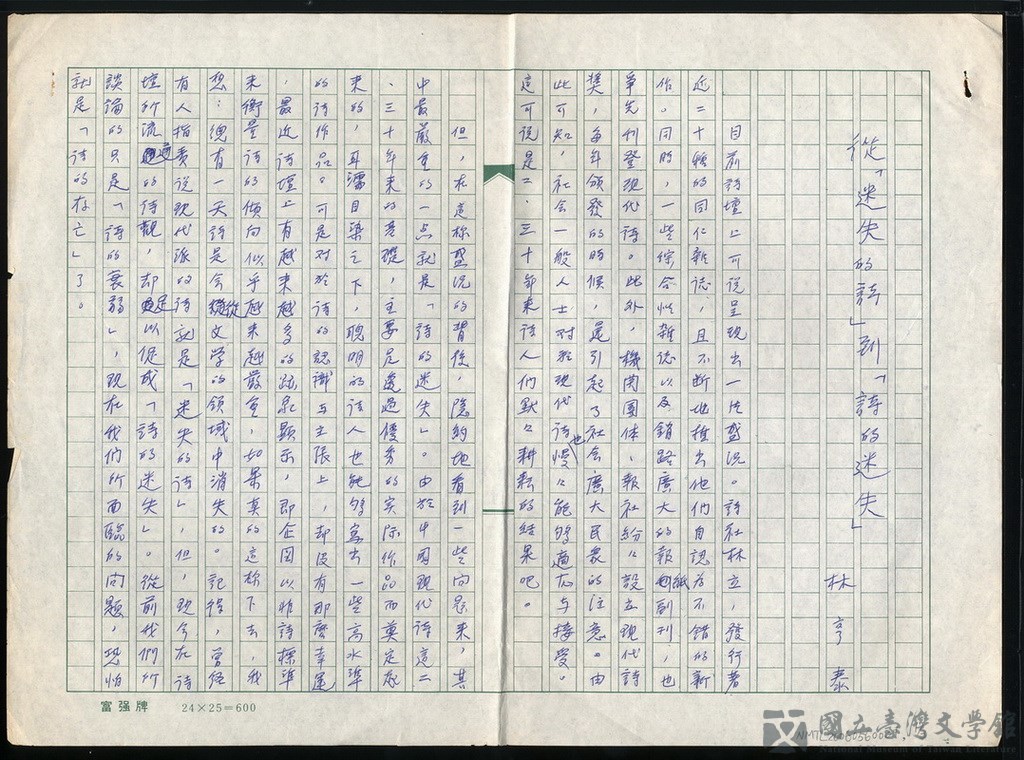 從「迷失的詩」到「詩的迷失」
林亨泰
目前詩壇上可說呈現出一片盛況。詩社林立，發行著
近二十種的同仁雜誌，且不斷地推出他們自認為不錯的新
作。同時，一些綜合性雜誌以及銷路廣大的報紙副刊，也
爭先刊登現代詩。此外，機関團体、報社紛々設立現代詩
獎，每年頒發的時候，還引起了社会廣大民衆的注意。由
此可知，社会一般人士对於現代詩也慢々能夠適应与接受。
這可說是二、三十年來詩人們默々耕耘的結果吧。
但，在這样盛況的背後，隐約地看到一些问題來，其
中最嚴重的一点就是「詩的迷失」。由於中國現代詩這二
、三十年來的基礎，主要是透過優秀的实际作品而奠定起
來的，耳濡目染之下，聰明的詩人也能夠寫出一些高水準
的詩作品。可是对於詩的認識与主張上，却没有那麼幸運
，最近詩壇上有越來越多的跡象顯示，即企図以非詩標準
來衡量詩的傾向似乎越來越嚴重，如果真的這样下去，我
想：總有一天詩是会從文学的領域中消失的。記得，曾經
有人指責說現代派的詩就是「迷失的詩」，但，現今在詩
壇所流通的詩觀，却足以促成「詩的迷失」。從前我們所
談論的只是「詩的衰弱」，現在我們所面臨的问題，恐怕
就是「詩的存亡」了。
富强牌 24×25=600
國立臺灣文學館
National Museum of Taiwan Literature